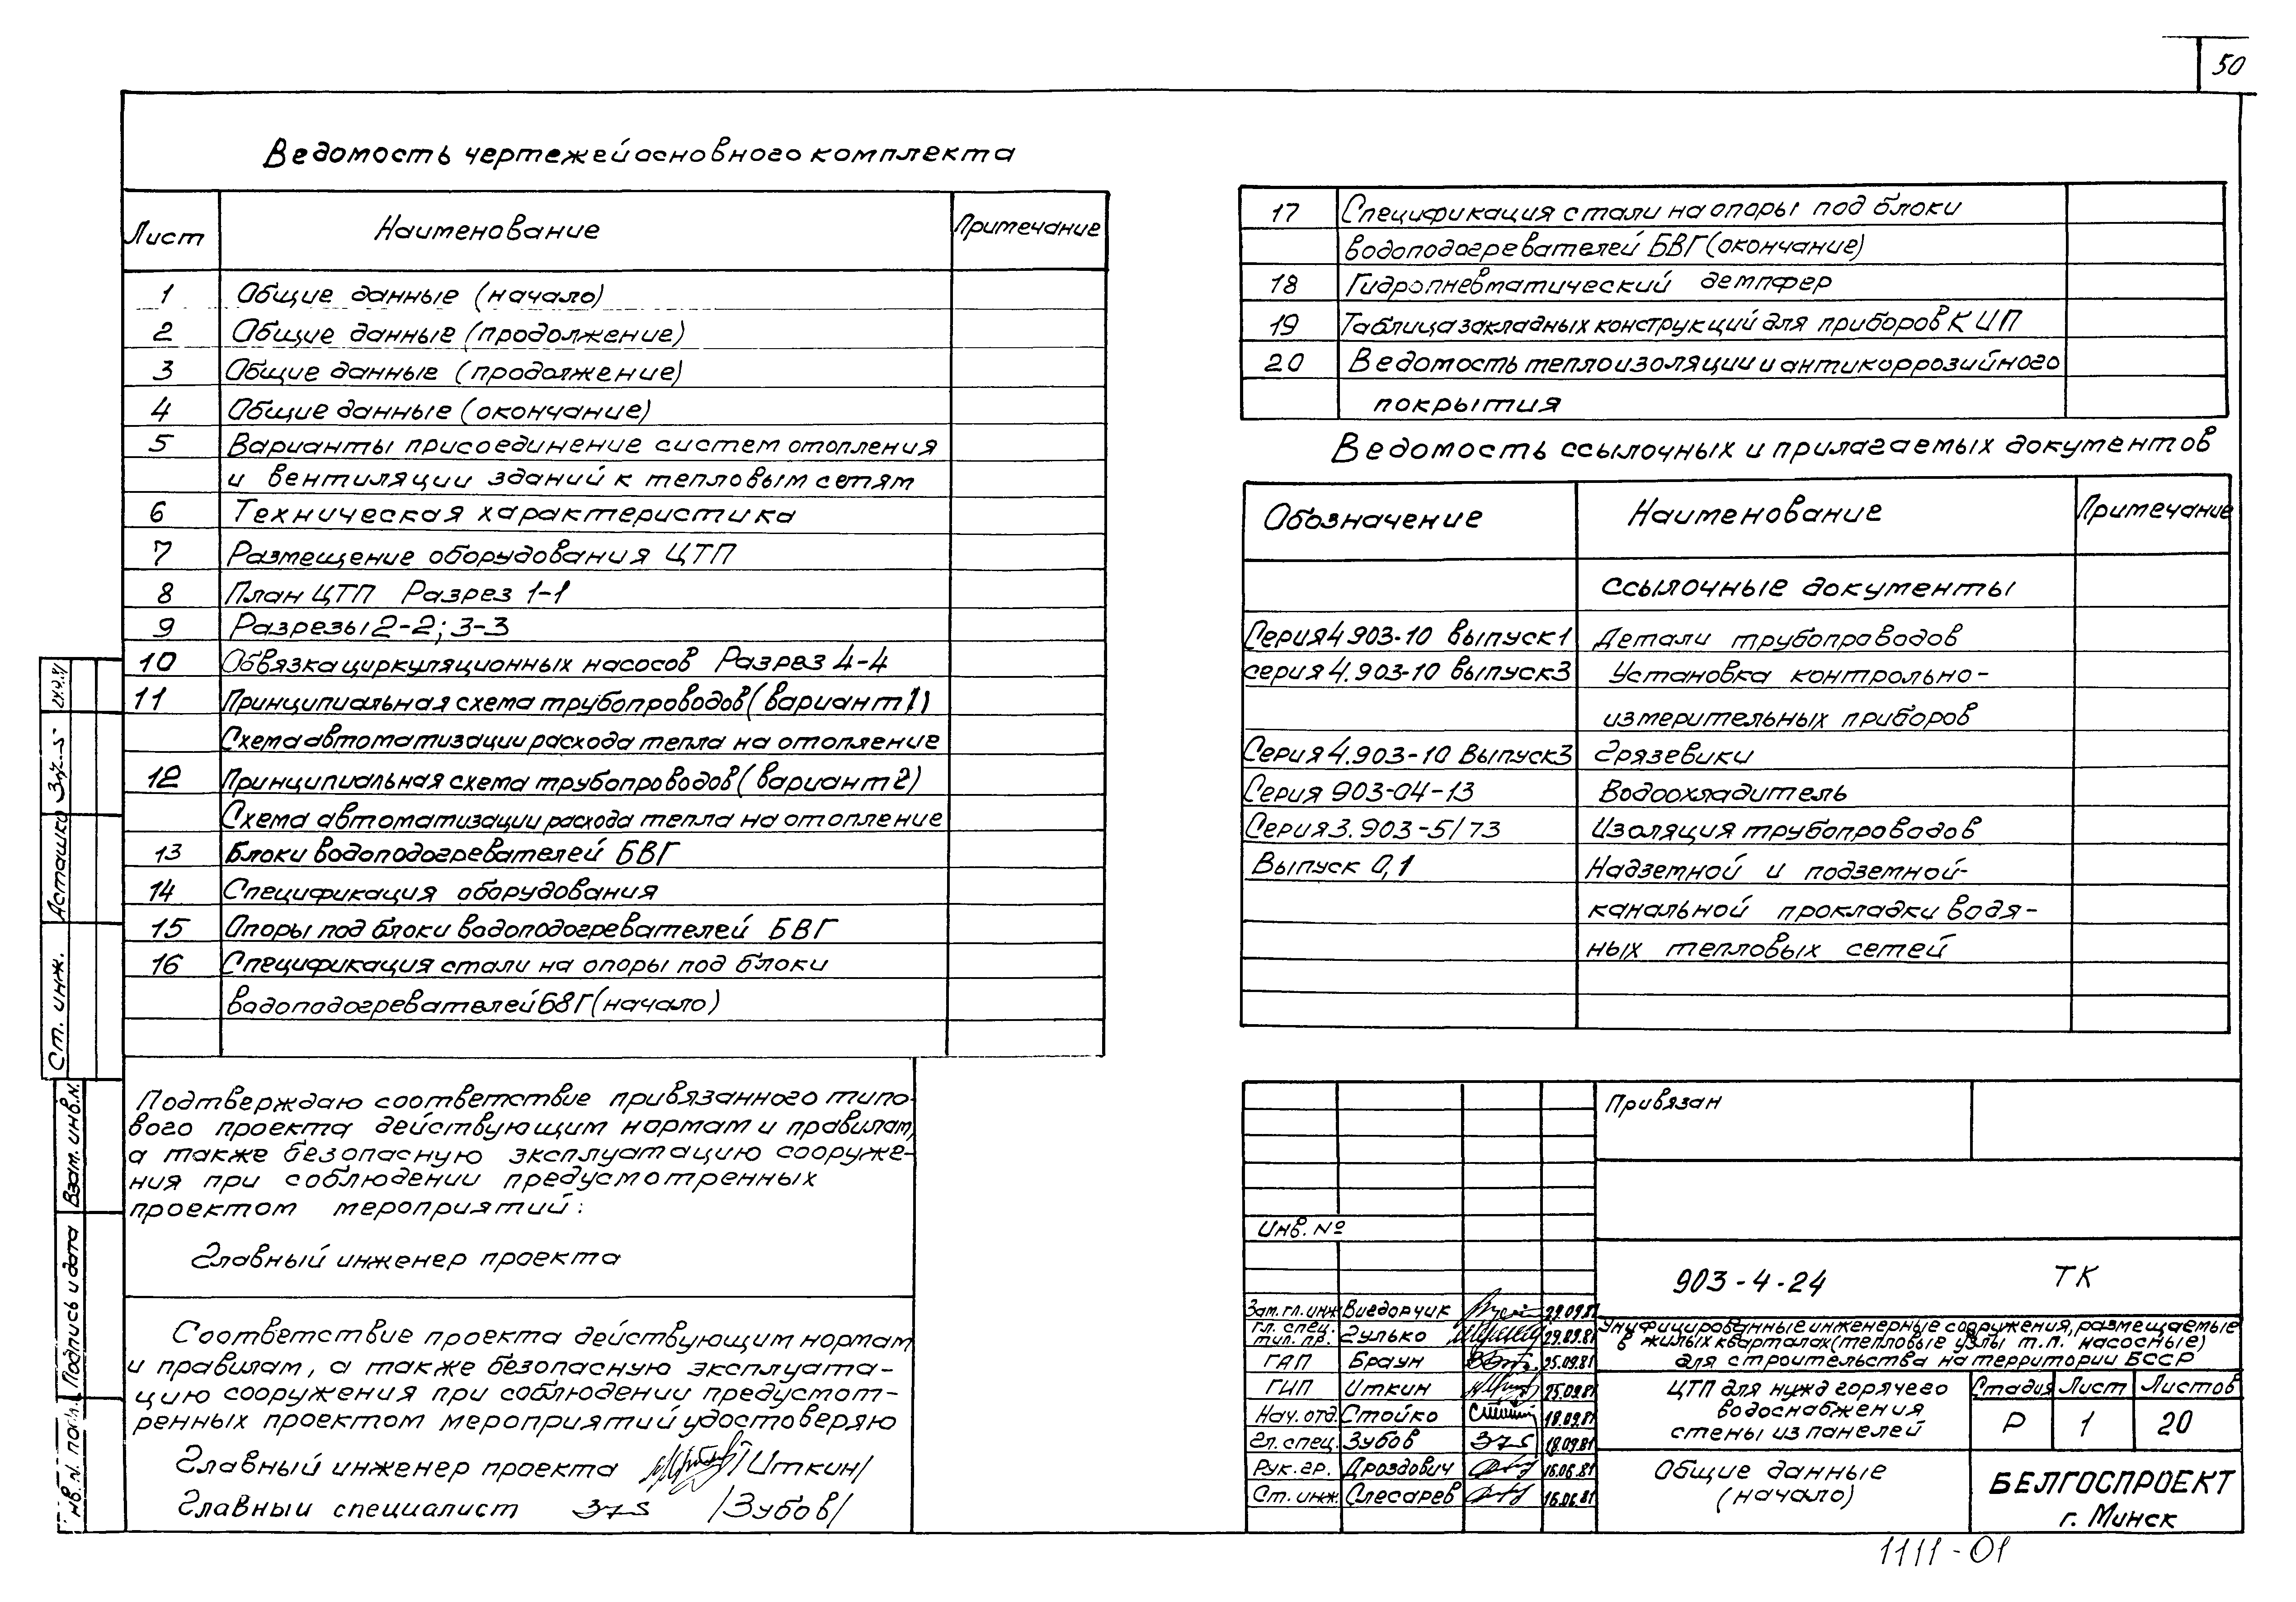 50
Ведомость чертежей основного комплекта
Лист Наименование Примечание
1 Общие данные (начало)
2 Общие данные (продолжение)
3 Общие данные (продолжение)
4 Общие данные (окончание)
5 Варианты присоединение систем отопления
и вентиляции зданий к тепловым сетям
6 Техническая характеристика
7 Размещение оборудования ЦТП
8 План ЦТП Разрез 1-1
9 Разрезы 2-2; 3-3
10 Обвязка циркуляционных насосов Разрез 4-4
11 Принципиальная схема трубопроводов (вариант 1)
Схема автоматизации расхода тепла на отопление
12 Принципиальная схема трубопроводов (вариант 2)
Схема автоматизации расхода тепла на отопление
13 Блоки водоподогревателей БВГ
14 Спецификация оборудования
15 Опоры под блоки водоподогревателей БВГ
16 Спецификация стали на опоры под блоки
водоподогревателей БВГ (начало)
17 Спецификация стали на опоры под блоки
водоподогревателей БВГ (окончание)
18 Гидропневматический демпфер
19 Таблица закладных конструкций для приборов КИП
20 Ведомость теплоизоляции и антикоррозийного
покрытия
Ведомость ссылочных и прилагаемых документов
Обозначение Наименование Примечание
Ссылочные документы
Серия 4.903-10 выпуск 1 Детали трубопроводов
серия 4.903-10 выпуск 3 Установка контрольно-
измерительных приборов
Серия 4.903-10 Выпуск 3 Грязевики
Серия 903-04-13 Водоохладитель
Серия 3.903-5/73 Изоляция трубопроводов
Выпуск 0,1 Надземной и подземной-
канальной прокладки водя-
ных тепловых сетей
Подтверждаю соответствие привязанного типо-
вого проекта действующим нормам и правилам,
а также безопасную эксплуатацию сооруже-
ния при соблюдении предусмотренных
проектом мероприятий:
Главный инженер проекта
Соответствие проекта действующим нормам
и правилам, а также безопасную эксплуата-
цию сооружения при соблюдении предусмот-
ренных проектом мероприятий удостоверяю
Главный инженер проекта /Иткин/
Главный специалист /Зубов/
Ст. инж. Асташко
Взам. инв. N.
Подпись и дата
Инв. N. подл.
Привязан
Инв. №
903-4-24 ТК
Зам. гл. инж 29.09.81
Гл. спец. тип. пр. Гулько 29.09.81
ГАП Браун 25.09.81
ГИП Иткин 25.09.81
Нач. отд. Стойко 18.09.81
Гл. спец. Зубов 18.09.81
Рук. гр. Дроздович 16.06.81
Ст. инж. Слесарев 16.06.81
Унифицированные инженерные сооружения, размещаемые
в жилых кварталах (тепловые узлы т.п. насосные)
для строительства на территории БССР
ЦТП для нужд горячего
водоснабжения
стены из панелей
Стадия Лист Листов
Р 1 20
Общие данные
(начало)
БЕЛГОСПРОЕКТ
г. Минск
1111-01